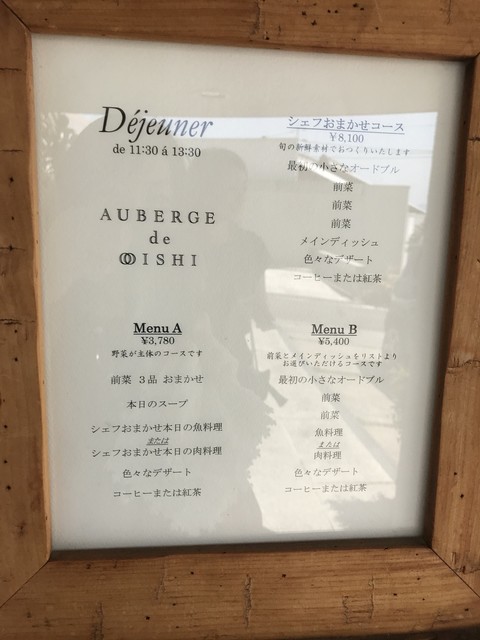 Déjeuner
de 11:30 á 13:30
AUBERGE
de
OOISHI
シェフおまかせコース
￥8,100
旬の新鮮素材でおつくりいたします
最初の小さなオードブル
前菜
前菜
前菜
メインディッシュ
色々なデザート
コーヒーまたは紅茶
Menu A
¥3,780
野菜が主体のコースです
前菜 3品 おまかせ
本日のスープ
シェフおまかせ本日の魚料理
または
シェフおまかせ本日の肉料理
色々なデザート
コーヒーまたは紅茶
Menu B
¥5,400
前菜とメインディッシュをリストより
お選びいただけるコースです
最初の小さなオードブル
前菜
前菜
魚料理
または
肉料理
色々なデザート
コーヒーまたは紅茶